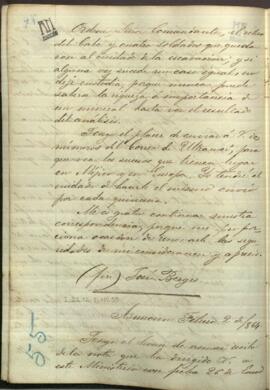 Ordene Señor Comandante, el retiro
del Cabo y cuatro soldados que quedaron
con el cuidado de la
alguna vez sucede un caso igual
deje custodia, porque nunca puede
saberse la riqueza o importancia de
un mineral hasta ver el resultado
del análisis.
Tengo el placer de enviar á V. de
del Correo de Ultramar, para
que vea los sucesos que tienen lugar
en Méjico y en Europa. Yo tendré el
cuidado de hacerle el mismo envío
por cada quincena.
Me es grato continuar nuestra
correspondencia, porque me
ciona ocasión de las segu
ridades de mi consideración y aprecio.
(fir) José Berges
Asunción Febrero 2 de 1864
Tengo el honor de
de la nota que ha dirigido V. a
este Ministerio con fecha 26 de